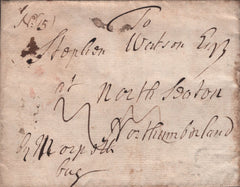 No. 5
To
Stephen Watson Esqr
at North Seaton
Northumberland
By Morpeth
bag